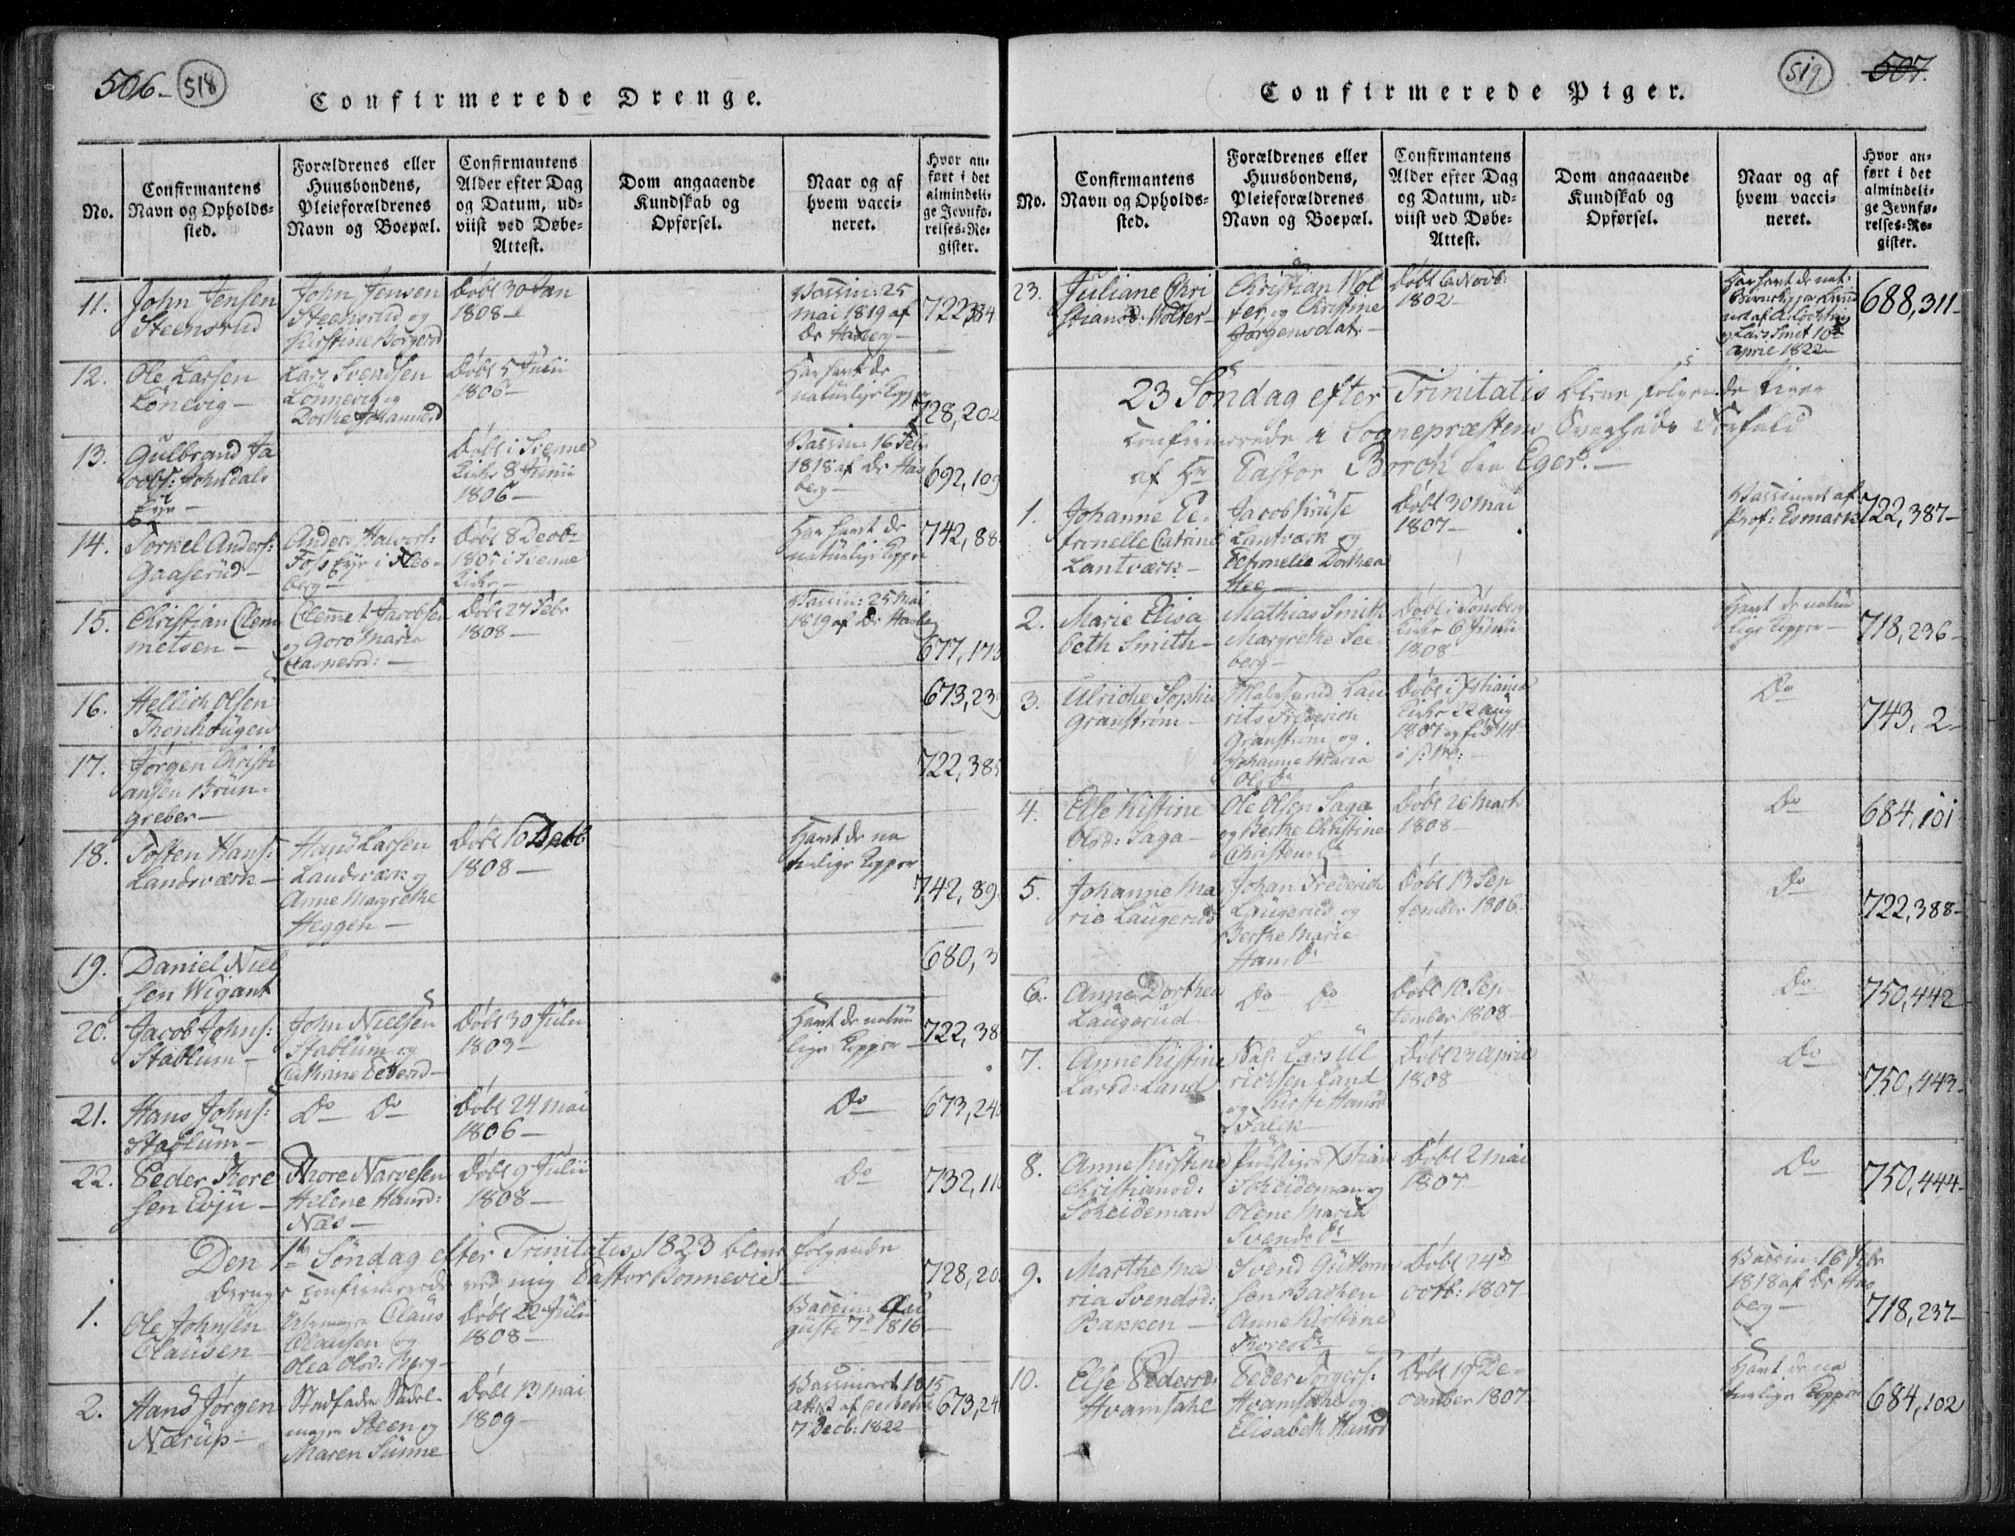 506- 518
Confirmerede Drenge.
No.
Confirmantens
Navn og Opholds-
sted.
Forældrenes eller
Huusbondens,
Pleieforældrenes
Navn og Boepæl.
Confirmantens
Alder efter Dag
og Datum, ud-
viist ved Døbe-
Attest.
Dom angaaende
Kundskab og
Opførsel.
Naar og af
hvem vacci-
neret.
Hvor an-
ført i det
almindeli-
ge Jevnfø-
relses-Re-
gister.
11.
John Jensen
Steensrud
John Jensen
Steensrud og
Døbt 30 Jan
1808-
Vaccin: 25
Mai 1819 af
Dr Hasberg-
12.
Ole Larsen
Lønevig-
Lars Svendsen
Lønnevig og
Dorthe
Døbt 5 Julii
1806
Har havt de
naturlige Kopper
728,202
13.
Gulbrand Ja
cobs: Johnsdals
Eye-
Døbt i Skienne
Kirke 8 Junii
1806-
Vaccin: 16 Feb
1818 af Dr Has
berg-
692,109
14.
Torkel Anders:
Gaaserud-
Anders Halvors:
Foss Eye i Fles-
berg-
Døbt 8 Decbr
1805 i Skienne
Kirke-
Har havt de
naturlige Kopper
742,88
15.
Christian Clem
metsen-
Clemmet Jacobsen
og Goro Maria
Døbt 27 Febr
1808-
Vaccin: 25 Mai
1819 af Dr Hasbe
677,173
16.
Hellich Olsen
Thonhougen
673,239
17.
Jørgen Christi
ansen Brun-
greber-
722,385
18.
Tosten Hans:
Landsværk-
Hans Larsen
Landsværk og
Anne Margrethe
Heggen-
Døbt 10
1808-
Havt de na
turlige Kopper
742,89
19.
Daniel Niel
sen Wigant
680,3
20.
Jacob Johns:
Stablum-
John Nielsen
Stablum og
Cathrine Pedersd-
Døbt 30 Julii
1803-
Havt de natur
lige Kopper-
722,38
21.
Hans Johns:
Stablum-
Do Do
Døbt 24 Mai
1806-
Do
673,240
22.
Peder Thore
sen Evju-
Thore Narvesen
Helene Hansd:
Næs-
Døbt 9 Julii
1808-
Do
732,110
Den 1te Søndag efter Trinitatis, 1823 bleve følgende
Drenge confirmerede ved mig Pastor Bonnevie-
1.
Ole Johnsen
Clausen-
Claus
Clausen og
Olea Olsd: Berg-
Døbt 22 Julii
1808-
Vaccin: Au
gusti 7d 1816-
728,20
2.
Hans Jørgen
Nærup-
Stedfader Sadel-
mager Steen og
Maren Sünne
Døbt 13 Mai
1809-
Vaccineret 1815
Attest af
7 Decb: 1822-
673,241
519 507.
Confirmerede Piger.
No.
Confirmantens
Navn og Opholds-
sted.
Forældrenes eller
Huusbondens,
Pleieforældrenes
Navn og Boepæl.
Confirmantens
Alder efter Dag
og Datum, ud-
viist ved Døbe-
Attest.
Dom angaaende
Kundskab og
Opførsel.
Naar og af
hvem vacci-
neret.
Hvor an-
ført i det
almindeli-
ge Jevnfø-
relses-Re-
gister.
23.
Juliane Chri
stiansd: Wolter-
Christian Wol
ter, og Christine
Jørgensdat:-
Døbt 6 Novb:
1802-
Har havt de nat:
og Lars Smet 16de
April 1822-
688,311-
23 Søndag efter Trinitatis bleve følgende Piger
confirmerede i Sognepræstens Svagheds Forfald
af Hr Pastor Borch fra Eger.-
1.
Johanne Pe-
tronelle Catrine
Lantværk-
Jacob Kruse
Lantværk og
Petronelle Dorthea
Hee-
Døbt 30 Mai
1807-
Vaccineret af
Prof: Esmark
722,387-
2.
Marie Elisa
beth Smith-
Mathias Smith
Margrethe See-
berg-
Døbt i Tønsberg
Kirke 6 Junii
1808-
Havt de natur
lige Kopper-
718,236-
3.
Ulriche Sophie
Granstrøm-
Lau
rits Friderich
Granstrøm og
Johanne Maria
Olsdr
Døbt i Xstiania
Kirke 22 Aug
1807
Do
743,2-
4.
Else Kistine
Olsd: Saga-
Ole Olsen Saga
og Berthe Christine
Christensdt
Døbt 26 Marti
1808-
Do
684,101
5.
Johanne Ma
rie Laugerud
Johan Frederich
Laugerud og
Berthe Marie
Hansdr
Døbt 13 Sep
tember 1806-
Do
722,388-
6.
Anne Dorthea
Laugerud
Do Do
Døbt 10 Sep
tember 1808-
Do
750,442-
7.
Anne Kistine
Larsd: Land
Sal: Lars Ul
richsen Land
og Kirsti Hansd
Falck
Døbt 23 April
1808
Do
750,443-
8.
Anne Kirstine
Christiansd:
Scheideman
Xstian
Scheideman og
Olene Maria
Svendsdt
Døbt 2 Mai
1807-
Do
750,444-
9.
Marthe Ma
ria Svendsd:
Bakken-
Svend Guttorm
sen Bachen
Anne Kirstine
Thoresdr
Døbt 24d
octb: 1807-
Vaccin: 16 Febr
1818 af Dr Has
berg-
718,237-
10.
Else Pedersd:
Hvamsahl
Peder Torgers:
Hvamsahl og
Elisabeth Hansd
Døbt 19 De-
cember 1807-
Havt de na
turlige Kopper
684,102